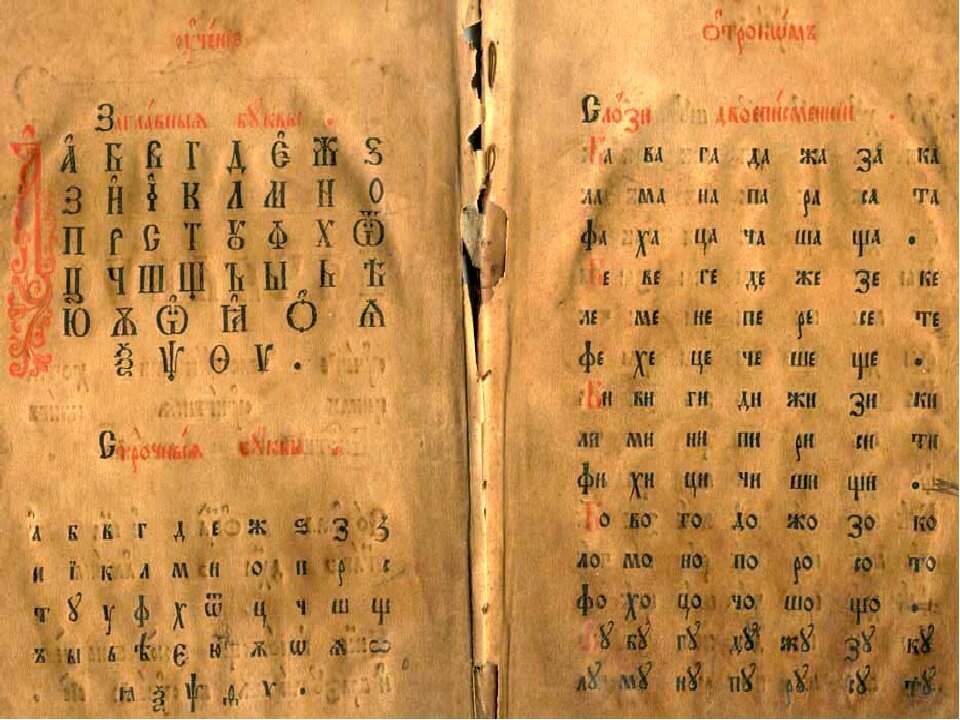 Ѹ҆че́нїе
Загла́вныѧ бꙋ́квы .
А҆ Б В Г Д Є҆ Ж Ѕ
З Й І҆ К Л М Н О
П Р С Т Ꙋ Ф Х Ѿ
Ц Ч Ш Щ Ъ Ы Ь Ѣ
Ю Ѫ Ѡ҆ Ꙗ҆ Ѻ҆ Ѧ
Ѯ Ѱ Ѳ Ѵ .
Стро́чныѧ бꙋ́квы .
а҆ б в г д е ж ѕ з
и ї к л м н о п р с
т ꙋ у ф х ѿ ц ч ш щ
ъ ы ь ѣ є ю ѫ ѡ ѧ
ѯ ѱ ѵ .
Ѻ҆трокѡ́мъ
Сло́зи двоепи́сменнїи .
Ба ва га да жа за ка
ла ма на па ра са та
фа ха ца ча ша ща .
Бе ве ге де же зе ке
ле ме не пе ре се те
фе хе це че ше ще .
Би ви ги ди жи зи ки
ли ми ни пи ри си ти
фи хи ци чи ши щи .
Бо во го до жо зо ко
ло мо но по ро со то
фо хо цо чо шо що .
Бꙋ вꙋ гꙋ дꙋ жꙋ зꙋ кꙋ
лꙋ мꙋ нꙋ пꙋ рꙋ сꙋ тꙋ